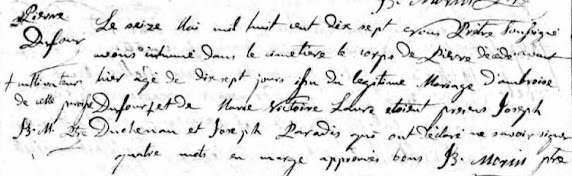 Pierre
Dufour
Le seize Mai mil huit cent dix sept nous Prêtre soussigné
avons inhumé dans le cimetière le corps de Pierre décédé avant
hier âgé de dix sept jours issu du legitime Mariage d'ambroise
+ cultivateur
de cette paroisse
B. M. Ptre
Dufour + et de Marie Victoire Laure etoient presens Joseph
Duchenau et Joseph Paradis qui ont déclaré ne savoir signer
quatre mots en marge approuvés bons B. Morin ptre